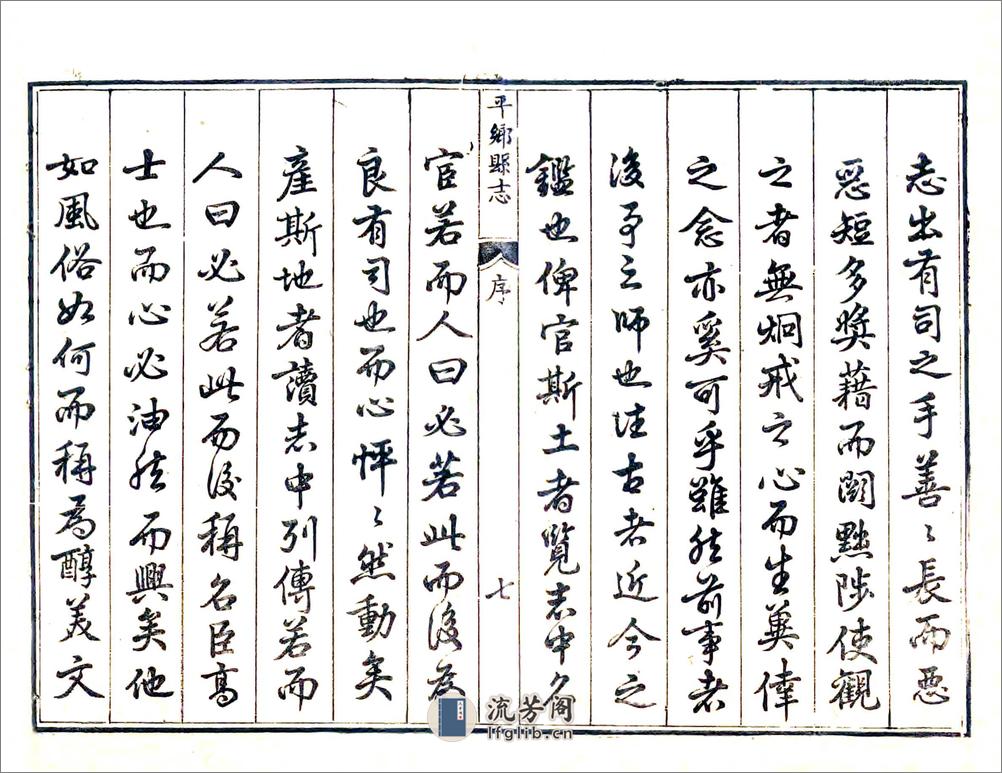 志出有司之手善〻長而惡
惡短多獎藉而闕黜陟使觀
之者無炯戒之心而生冀倖
之念亦奚可乎雖然前事者
後事之師也往古者近今之
鑑也俾官斯土者覽志中名
平鄉縣志
序
七
宦若而人曰必若此而後為
良有司也而心怦〻然動矣
產斯地者讀志中列傳若而
人曰必若此而後稱名臣高
士也而心必油然而興矣他
如風俗如何而稱為醇美文
流芳阁
lfglib.cn